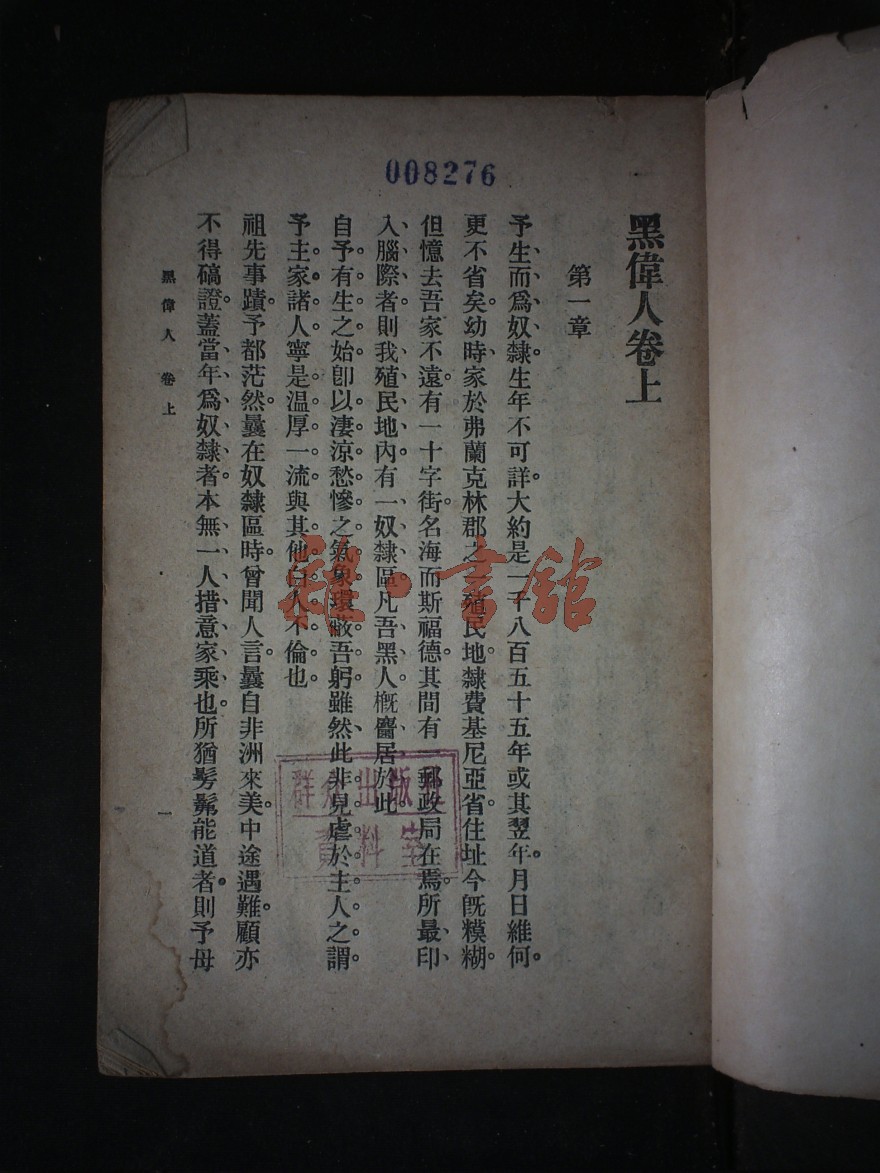 008276
黑偉人卷上
第一章
予生而爲奴隸。生年不可詳。大約是一千八百五十五年或其翌年。月日維何。
更不省矣。幼時家於弗蘭克林郡之殖民地。隸費基尼亞省。住址今旣糢糊。
但憶去吾家不遠。有一十字街。名海而斯福德。其間有一郵政局在焉。所最印
入腦際者。則我殖民地內。有一奴隸區。凡吾黑人。槪麕居於此。
自予有生之始。卽以淒涼愁慘之氣象。環蔽吾躬。雖然。此非見虐於主人之謂。
予主家諸人。寧是溫厚一流。與其他白人不倫也。
祖先事蹟。予都茫然。曩在奴隸區時。曾聞人言。曩自非洲來美。中途遇難。顧亦
不得碻證。蓋當年爲奴隸者。本無一人措意家乘也。所猶髣髴能道者。則予母
黑偉人 卷上
一
雜·書館
群众出版社
資料室